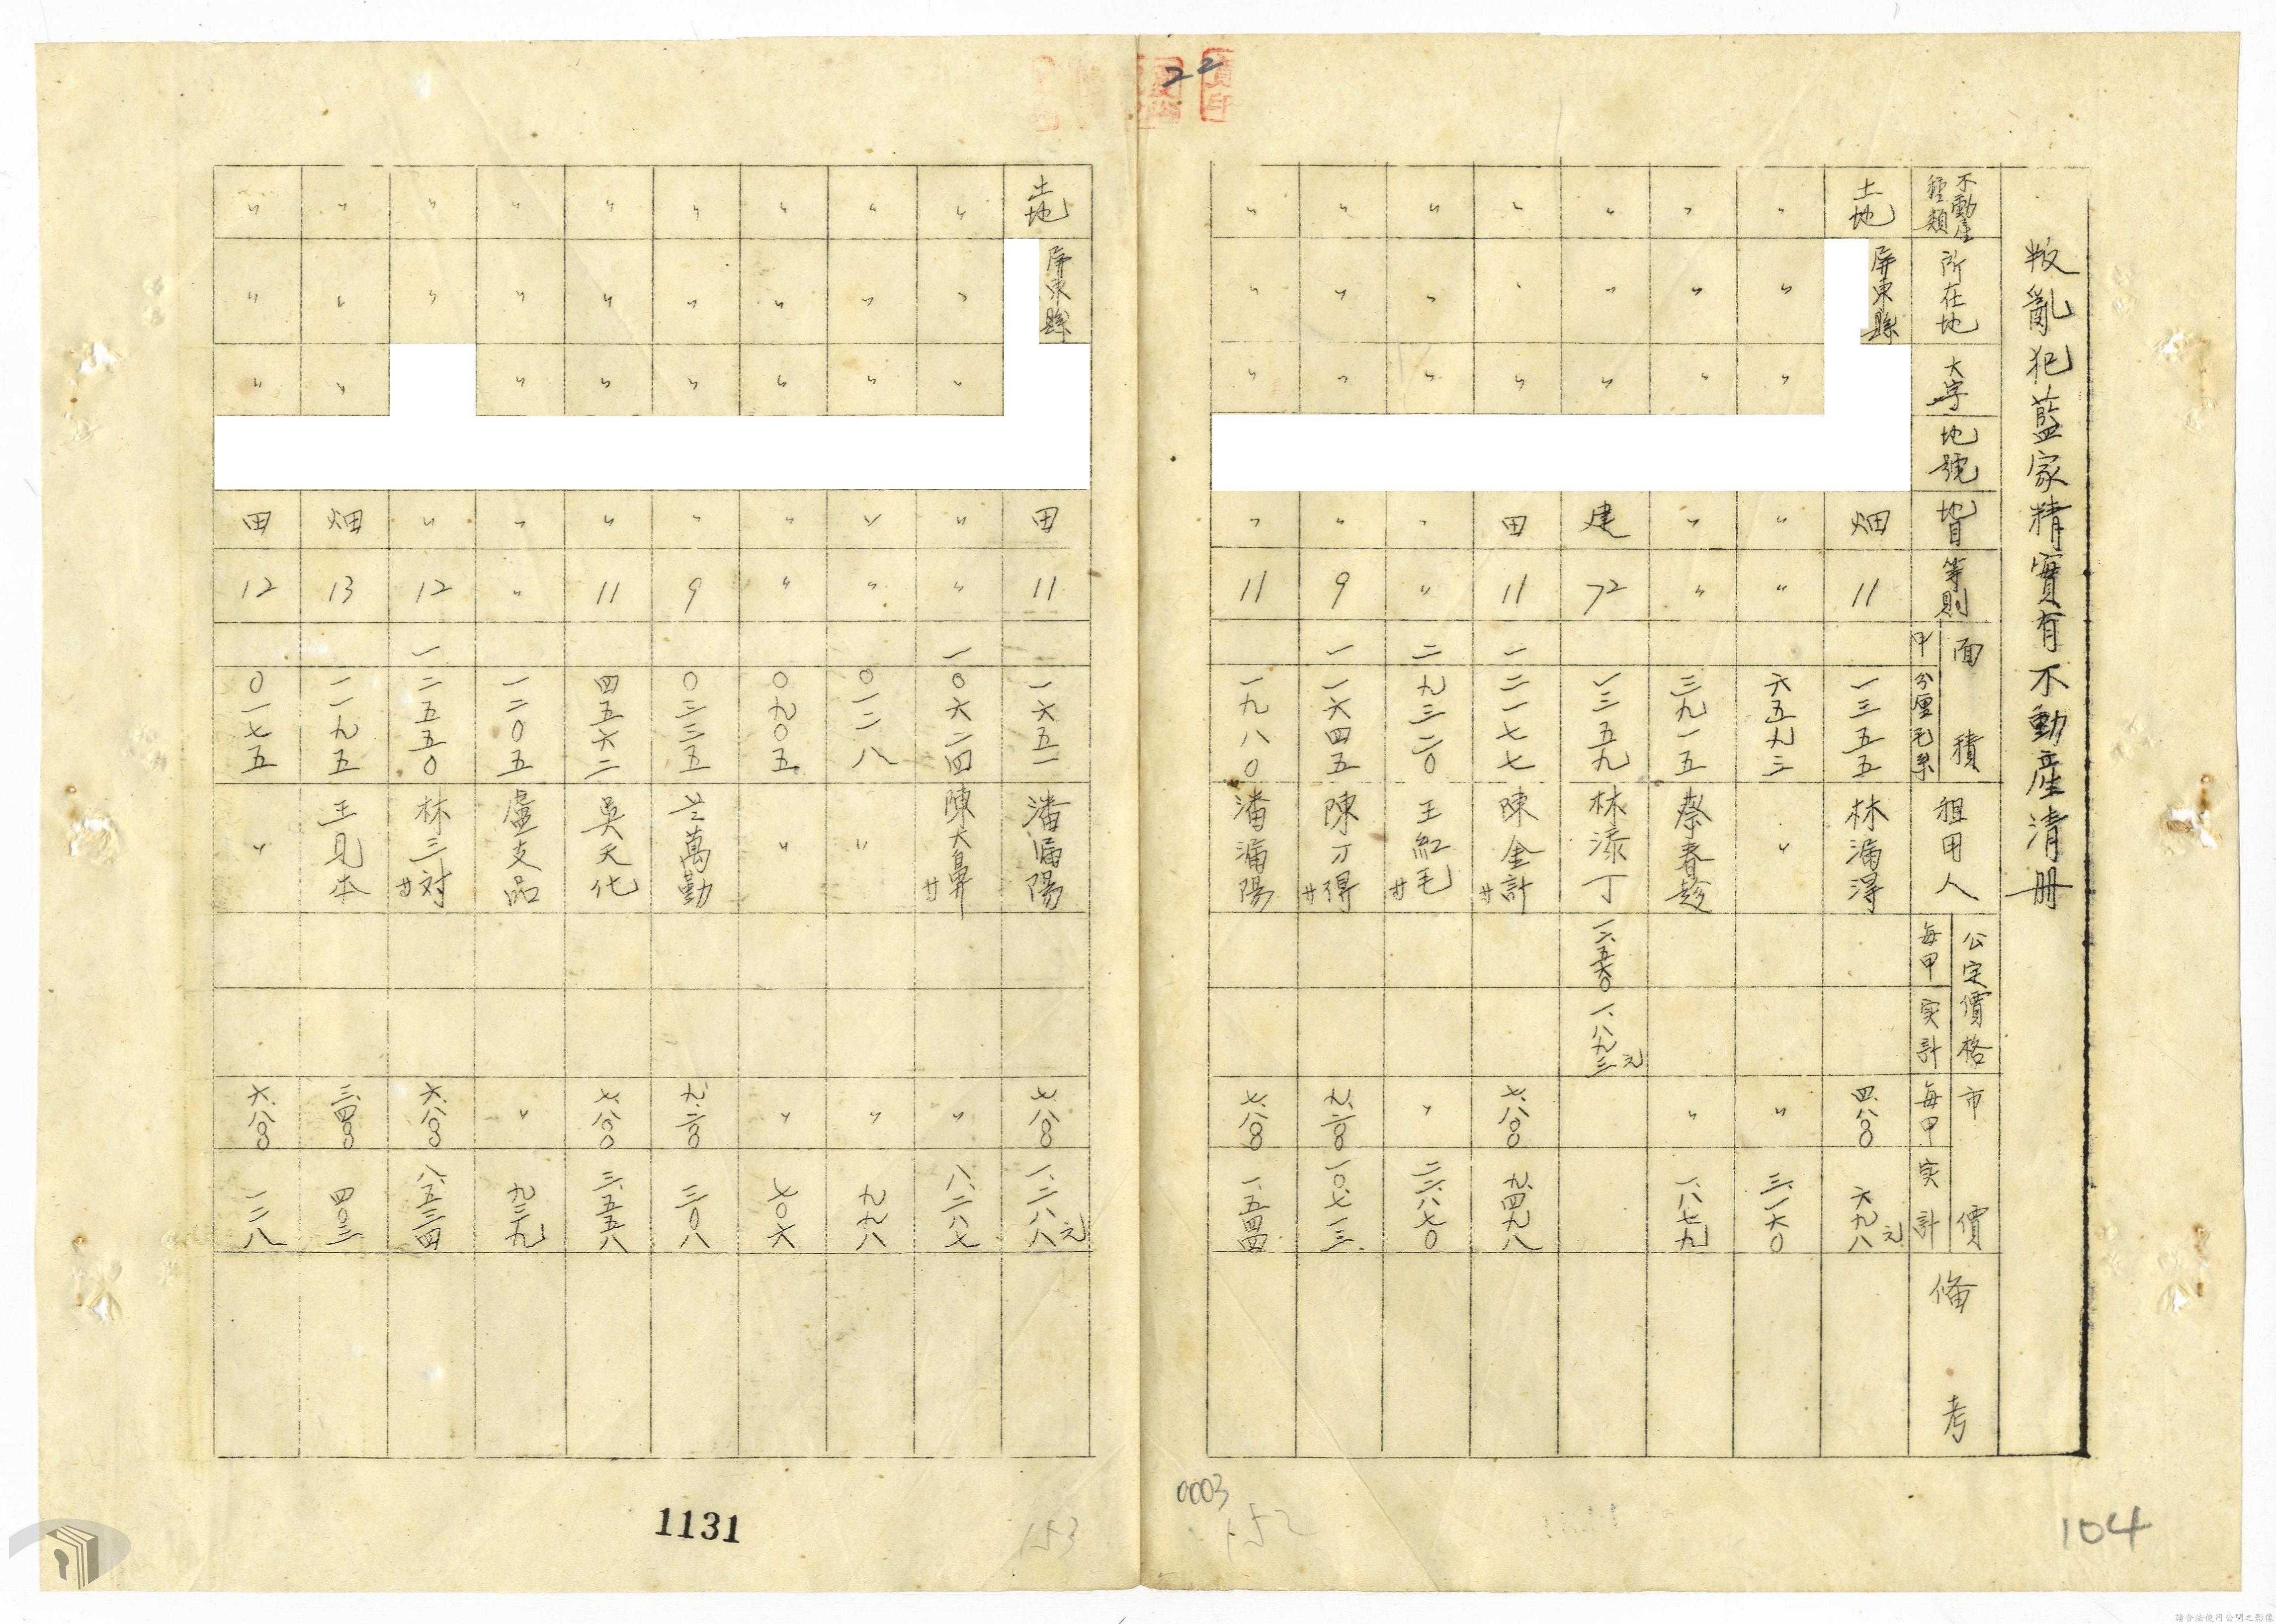 22
叛亂犯藍家精實有不動產清册
不動產種類 所在地 大字 地號 地目 等則 面積 甲 分厘毛糸 租用人 公定價格 每甲 实計 市價 每甲 实計 俻考
土地 屏東縣 畑 11 一三五五 林漏得 四.八〇〇 六九八元
〃 〃 〃 〃 〃 六五九三 〃 〃 三.一六〇
〃 〃 〃 〃 〃 三九一五 蔡春趁 〃 一.八七九
〃 〃 〃 建 72 一三五九 林漆丁 一.八九三元
〃 〃 〃 田 11 一 二一七七 陳金計 廿 七.八〇〇 九.四九八
〃 〃 〃 〃 〃 二 九三二〇 王紅毛 廿 〃 二二.八七〇
〃 〃 〃 〃 9 一 一六四五 陳刁得 廿 九.二〇〇 一〇.七一三
〃 〃 〃 〃 11 一九八〇 潘漏陽 七.八〇〇 一.五四四
土地 屏東縣 田 11 一六五一 潘漏陽 七.八〇〇 一.二八八元
〃 〃 〃 〃 〃 一 〇六二四 陳大鼻 廿 〃 八.二八七
〃 〃 〃 〃 〃 〇一二八 〃 〃 九九八
〃 〃 〃 〃 〃 〇九〇五 〃 〃 七〇六
〃 〃 〃 〃 9 〇三三五 萬勤 九.二〇〇 三〇八
〃 〃 〃 〃 11 四五六二 吳天化 七.八〇〇 三.五五八
〃 〃 〃 〃 〃 一二〇五 盧支品 〃 九三九
〃 〃 〃 12 一 二五五〇 林三対 廿 六.八〇〇 八.五三四
〃 〃 〃 畑 13 一一九五 王見本 三.四〇〇 四〇三
〃 〃 〃 田 12 〇一七五 〃 六.八〇〇 一二八
0003
152
104
1131
153
請合法使用公開之影像